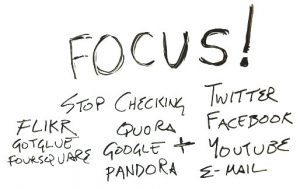 FOCUS!
STOP CHECKING TWITTER
FLIKR QUORA FACEBOOK
GOTGLUE GOOGLE + YOUTUBE
FOURSQUARE PANDORA E-MAIL